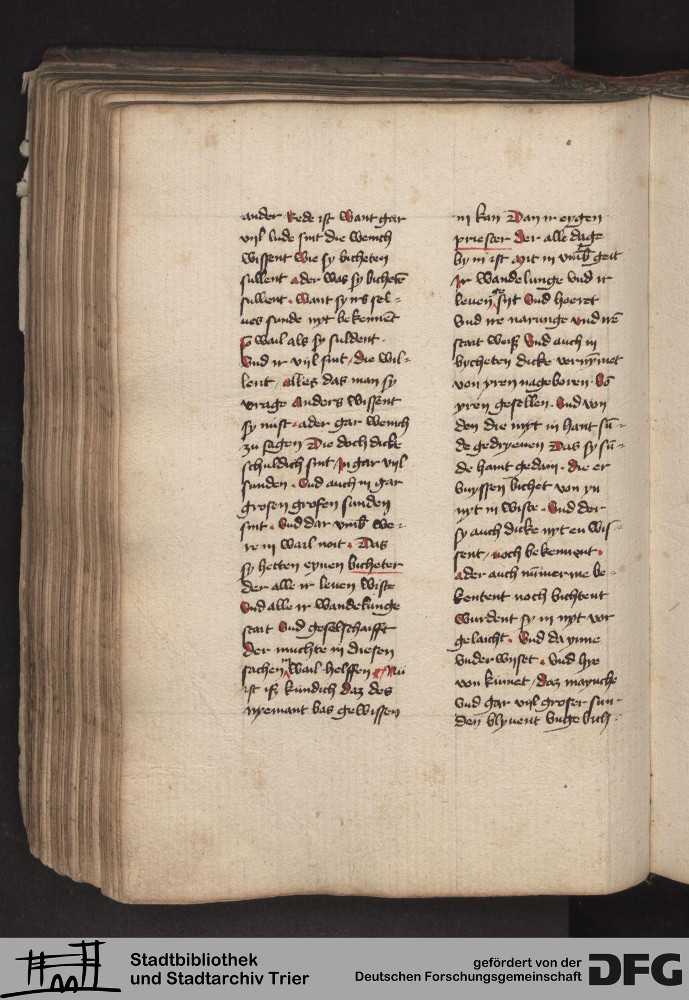 ander Rede ist Want gar
vijl lude sint die wenich
wissent wie sy bicheten
sullent Ader was sy bichetē
sullent . Want sy irs sel=
ues sunde nyt bekennēt
so wail als sy suldent .
Vnd ir vijl sint / die wil=
lent / alles das man sy
vrage Anders wissent
sy nust . ader gar wenich
zu sagen Die doch dicke
schuldich sint / In gar vijl
sunden . Vnd auch in gar
grosen grosen sunden
sint . Vnd dar vmb we=
re in wail noit . Das
sy hetten eynen bicheter
der alle ir leuen wiste
Vnd alle ir wandelunge
stait Vnd geselschaifft
der muchte in diesen
sachen wail helffen Nū
ist iß kundich daz des
nyemant bas gewissen
in kan Dan ir eygen
priester Der alle dage
by in ist mit in vmb geit
Ir wandelunge vnd ir
leuen syt Vnd hoeret
Vnd ire narunge vnd irē
stait weiß Vnd auch in
bycheten dicke vernȳmet
von yren nageboren Vō
yren gesellen . Vnd von
den die myt in haint sū=
de gedryeuen Das sy sū=
de haint gedain . die er
buyssen bichet von yn
nyt in wiste . Vnd der
sy auch dicke nyt en wis=
sent / noch bekennent .
ader auch nūmerme be=
kentent noch bichtent
Wurdent sy in nyt vor
gelaicht . Vnd da ynne
vnder wiset . Vnd hye
von kūmet / daz maynche
vnd gar vijl groser sun=
den blyuent vngebich=
Stadtbibliothek
und Stadtarchiv Trier
gefördert von der
Deutschen Forschungsgemeinschaft
DFG